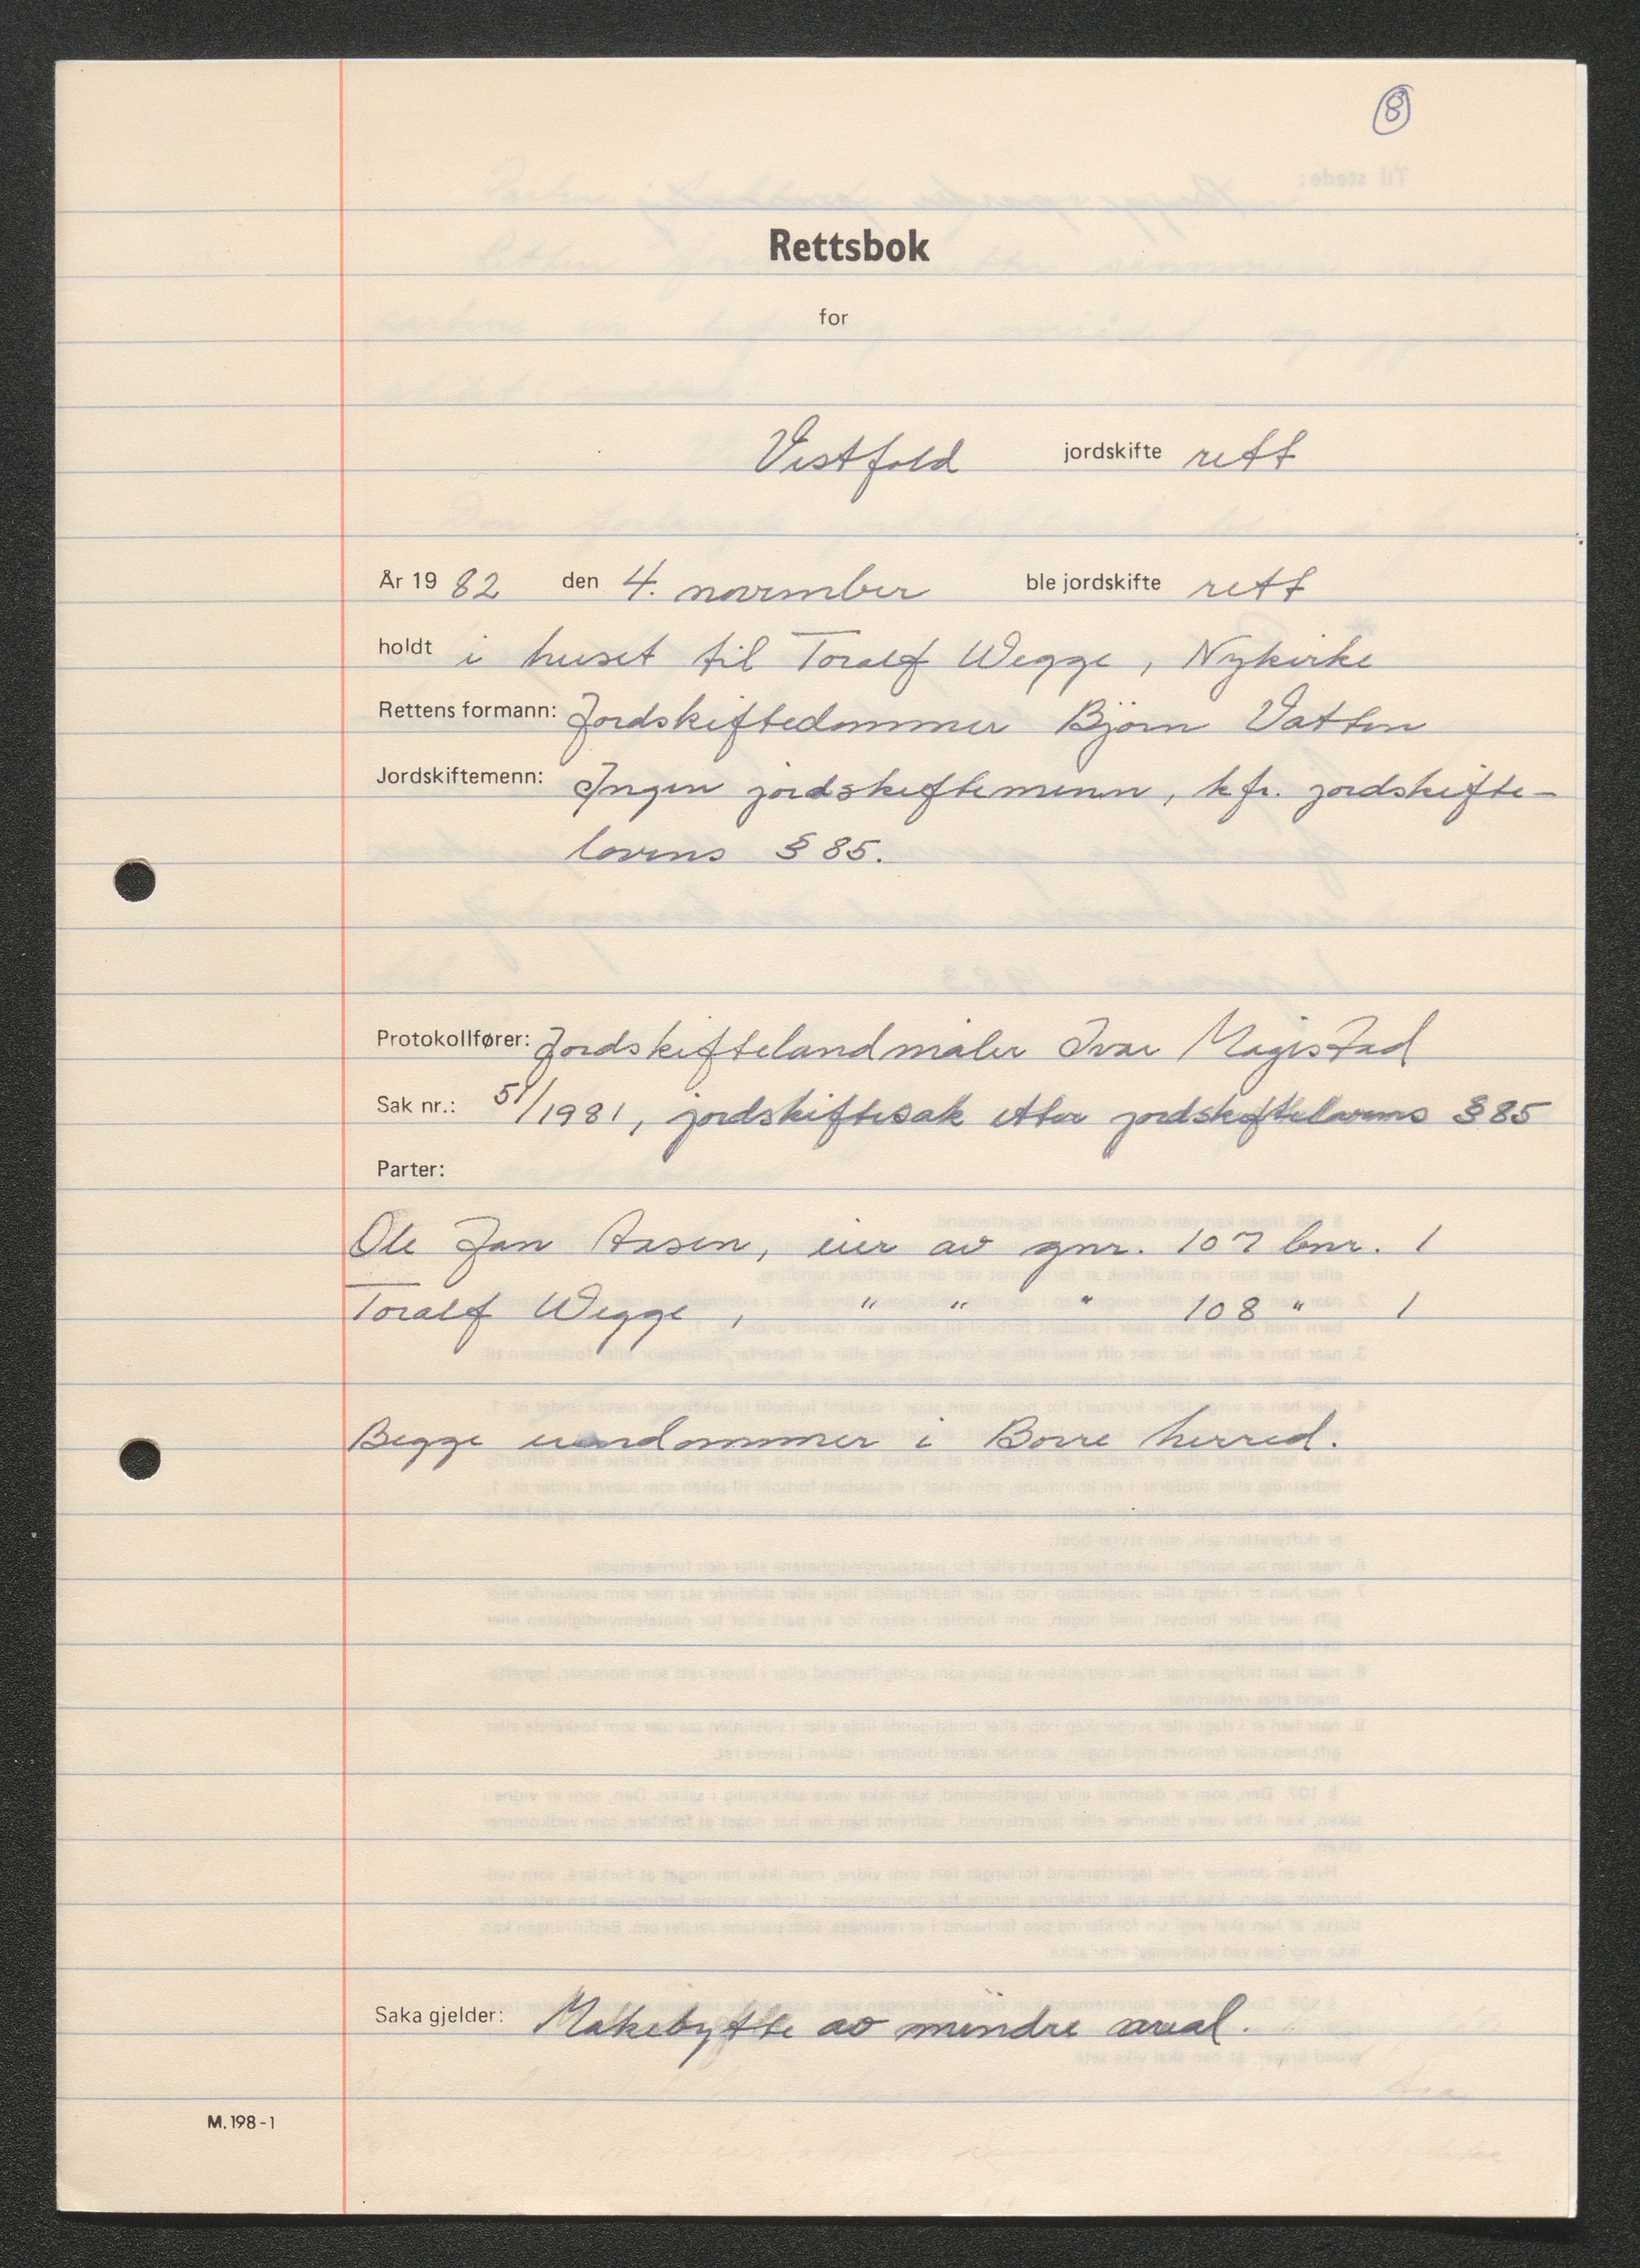 8
Rettsbok
for
Vestfold jordskifte rett
År 19 82 den 4. november ble jordskifte rett
holdt i huset til Toralf Wegge, Nykirke
Rettens formann: Jordskiftedommer Bjørn Vatten
Jordskiftemenn: Ingen jordskiftemenn, kfr. jordskifte-
lovens § 85.
Protokollfører: Jordskiftelandmåler Ivar Magistad
Sak nr.: 51/1981, jordskiftesak etter jordskiftelovens § 85
Parter:
Ole Jan Aasen, eier av gnr. 107 bnr. 1
Toralf Wegge, " " " 108 " 1
Begge eiendommer i Borre herred.
Saka gjelder: Makebytte av mindre areal.
M. 198-1